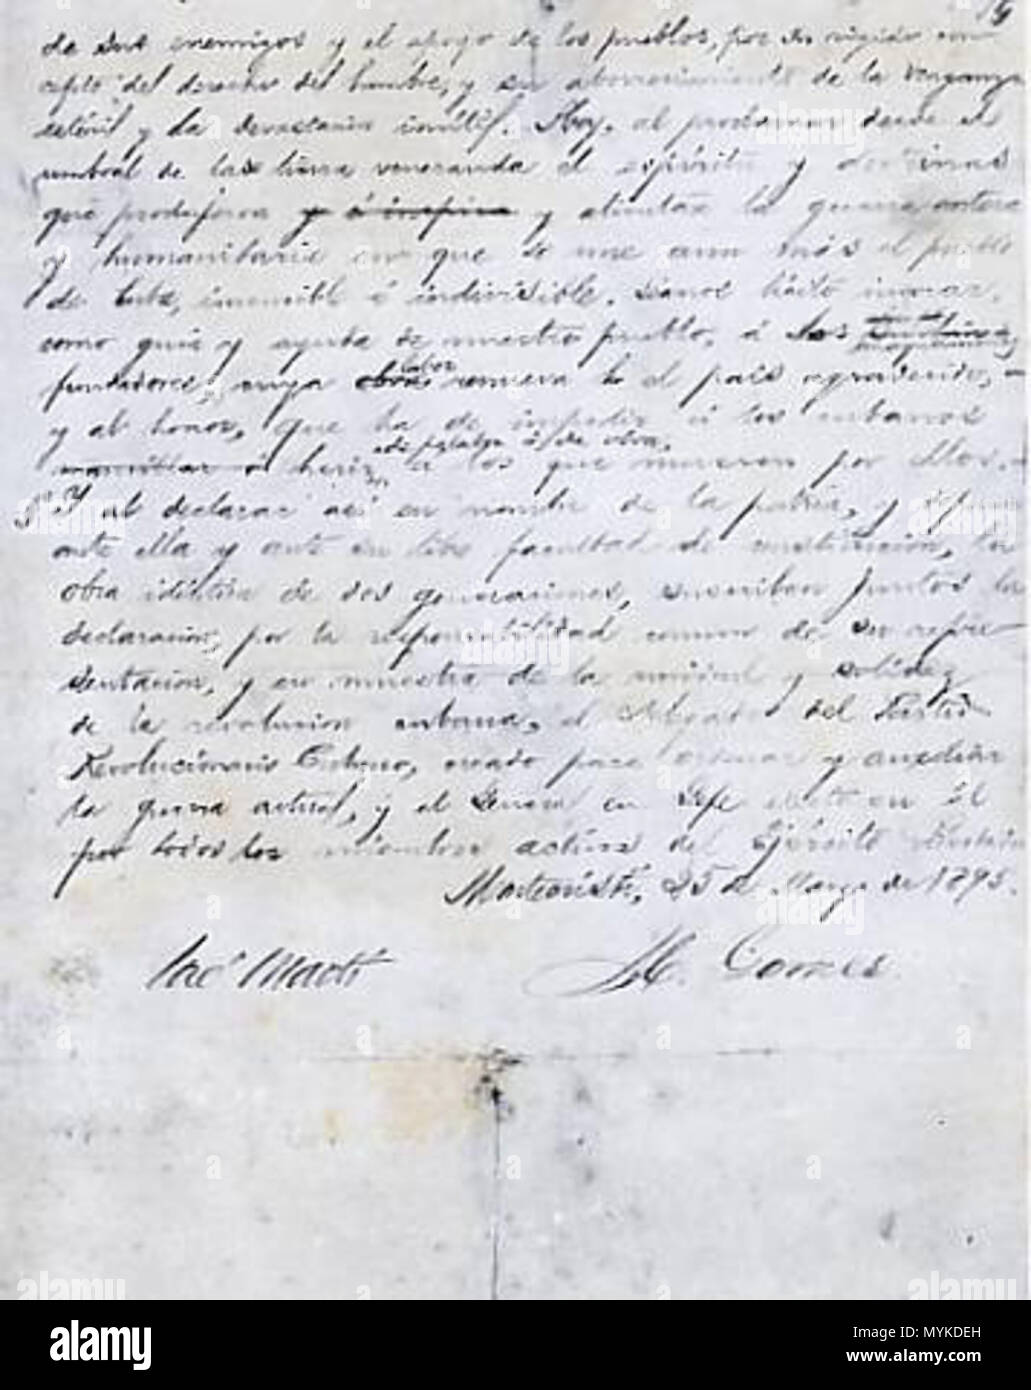 de sus enemigos y el apoyo de los pueblos, por su rígido con
cepto del derecho del hombre, y su aborrecimiento de la venganza
estéril y la devastación inútil. Hoy, al proclamar desde el
umbral de la tierra veneranda el espíritu y doctrinas
que produjeron y alientan la guerra entera
y humanitaria en que se une aun más el pueblo
de Cuba, invencible é indivisible, séanos lícito invocar,
como guía y ayuda de nuestro pueblo, á los magnánimos
fundadores, cuya labor renueva el país agradecido,
y al honor, que ha de impedir á los cubanos
herir, de palabra ó de obra, á los que mueren por ellos.
Y al declarar así en nombre de la patria, y deponer
ante ella y ante su libre facultad de constitución, la
obra idéntica de dos generaciones, suscriben juntos la
declaración, por la responsabilidad común de su repre
sentación, y en muestra de la unidad y solidez
de la revolución cubana, el Delegado del Partido
Revolucionario Cubano, creado para ordenar y auxiliar
la guerra actual, y el General en Jefe electo en él
por todos los miembros activos del Ejército Libertador
Montecristi, 25 de Marzo de 1895.
José Martí M. Gomez
alamy
Image ID: MYKDEH
www.alamy.com